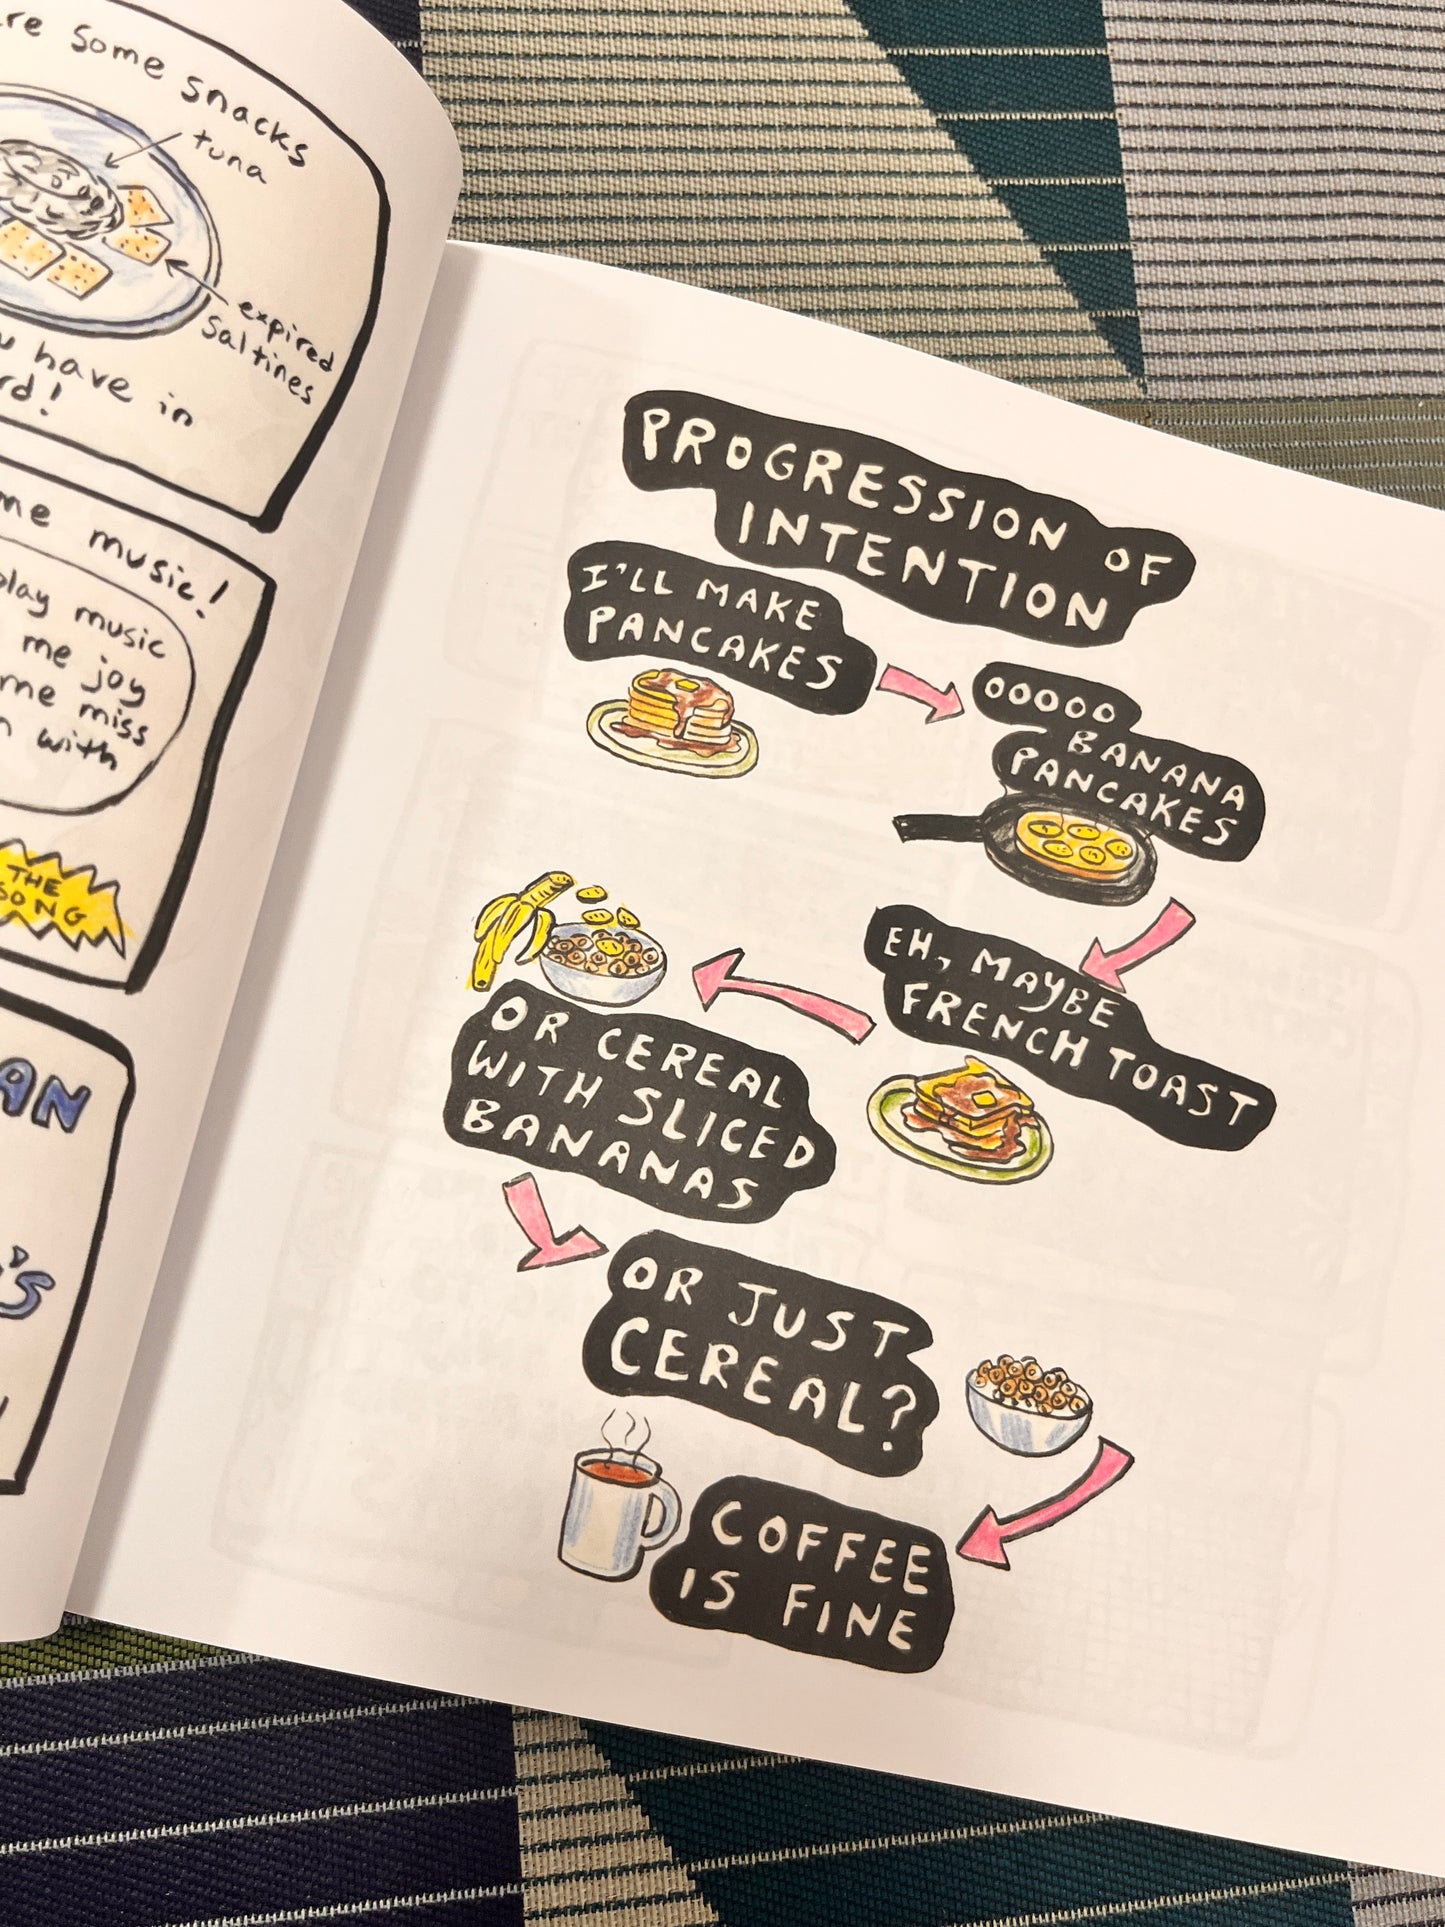 re some snacks
tuna
expired
Saltines
have in
rd!
me music!
play music
me joy
me miss
with
THE
SONG
AN
'S
PROGRESSION OF
INTENTION
I'LL MAKE
PANCAKES
OOOOO
BANANA
PANCAKES
EH, MAYBE
FRENCH TOAST
OR CEREAL
WITH SLICED
BANANAS
OR JUST
CEREAL?
COFFEE
IS FINE